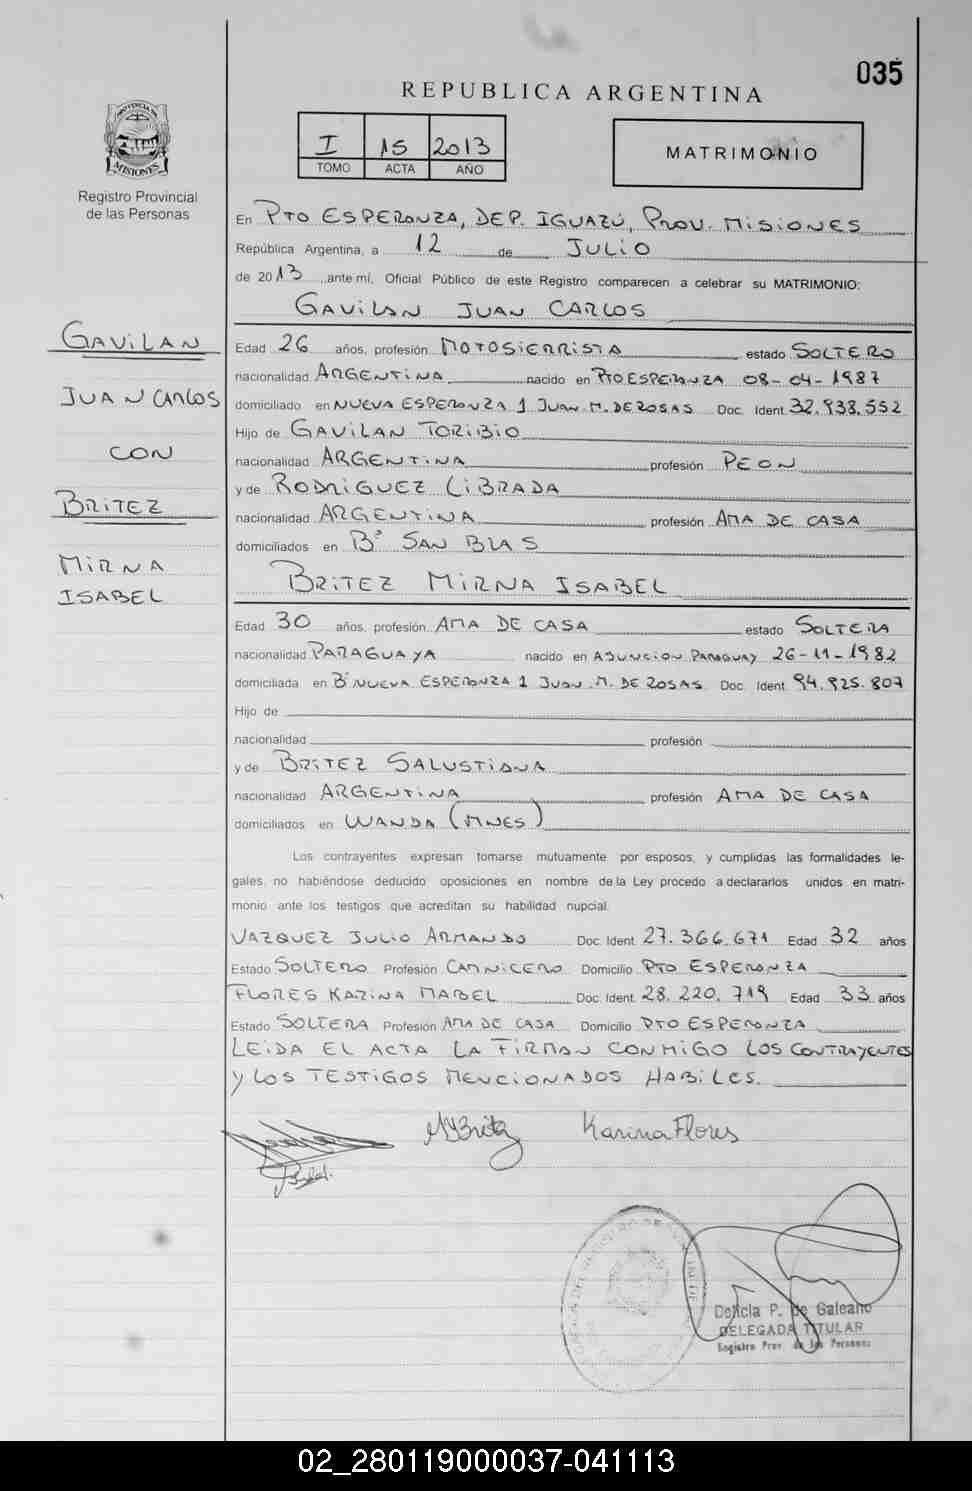 035
REPUBLICA ARGENTINA
I 15 2013
TOMO ACTA AÑO
MATRIMONIO
PROVINCIA DE
MISIONES
Registro Provincial
de las Personas
En PTO ESPERANZA, DEP. IGUAZÚ, PROV. MISIONES
República Argentina, a 12 de JULIO
de 2013 ante mí, Oficial Público de este Registro comparecen a celebrar su MATRIMONIO:
GAVILAN JUAN CARLOS
GAVILAN
JUAN CARLOS
CON
BRITEZ
MIRNA
ISABEL
Edad 26 años, profesión MOTOSIERRISTA estado SOLTERO
nacionalidad ARGENTINA nacido en PTO ESPERANZA 08-04-1987
domiciliado en NUEVA ESPERANZA 1 JUAN M. DE ROSAS Doc. Ident. 32.938.552
Hijo de GAVILAN TORIBIO
nacionalidad ARGENTINA profesión PEON
y de RODRIGUEZ LIBRADA
nacionalidad ARGENTINA profesión AMA DE CASA
domiciliados en Bº SAN BLAS
BRITEZ MIRNA ISABEL
Edad 30 años, profesión AMA DE CASA estado SOLTERA
nacionalidad PARAGUAYA nacido en ASUNCION PARAGUAY 26-11-1982
domiciliada en Bº NUEVA ESPERANZA 1 JUAN M. DE ROSAS Doc. Ident. 94.925.807
Hijo de
nacionalidad profesión
y de BRITEZ SALUSTIANA
nacionalidad ARGENTINA profesión AMA DE CASA
domiciliados en WANDA (MNES)
Los contrayentes expresan tomarse mutuamente por esposos, y cumplidas las formalidades le-
gales, no habiéndose deducido oposiciones en nombre de la Ley procedo a declararlos unidos en matri-
monio ante los testigos que acreditan su habilidad nupcial.
VAZQUEZ JULIO ARMANDO Doc. Ident. 27.366.671 Edad 32 años
Estado SOLTERO Profesión CARNICERO Domicilio PTO ESPERANZA
FLORES KARINA MABEL Doc. Ident. 28.220.719 Edad 33 años
Estado SOLTERA Profesión AMA DE CASA Domicilio PTO ESPERANZA
LEIDA EL ACTA LA FIRMAN CONMIGO LOS CONTRAYENTES
y LOS TESTIGOS MENCIONADOS HABILES.
Karina Flores
Delicia P. de Galeano
DELEGADA TITULAR
Registro Prov. de las Personas
02_280119000037-041113